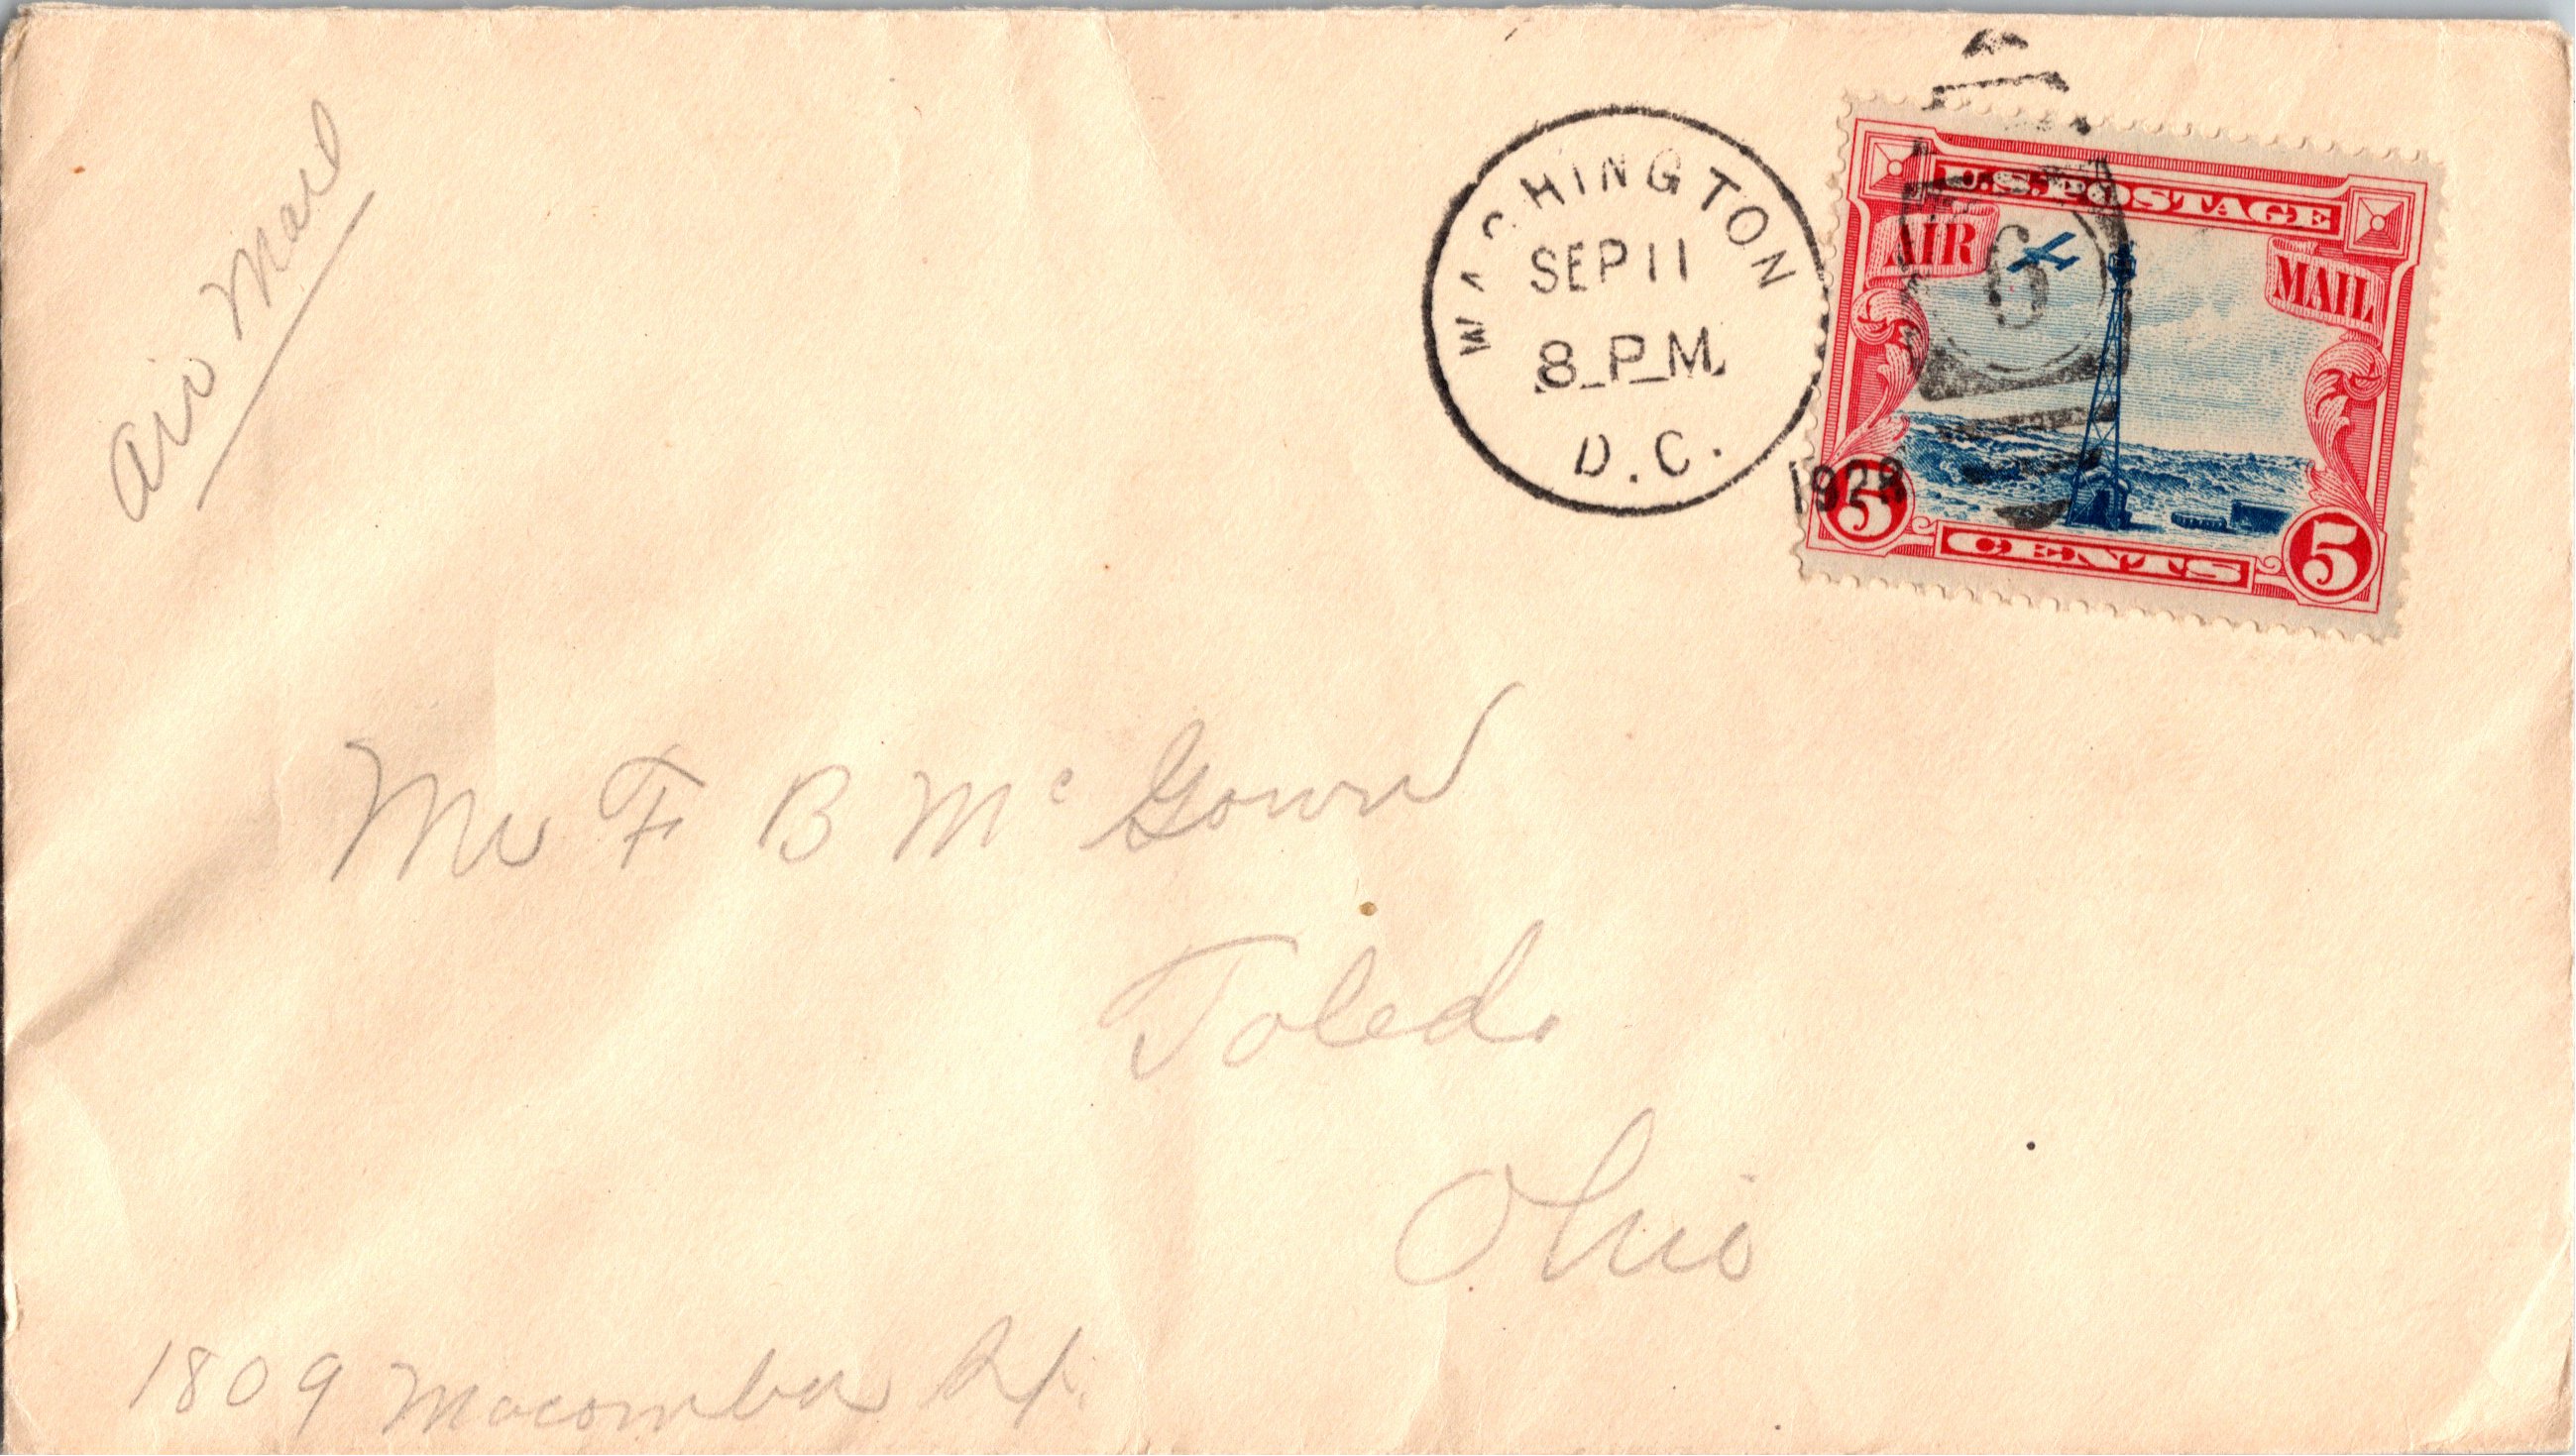 Air Mail
WASHINGTON
SEP 11
8-P-M.
D.C.
1928
6
U.S. POSTAGE
AIR MAIL
5 CENTS 5
Mr F B Mc Gown
Toledo
Ohio
1809 Macomber St.